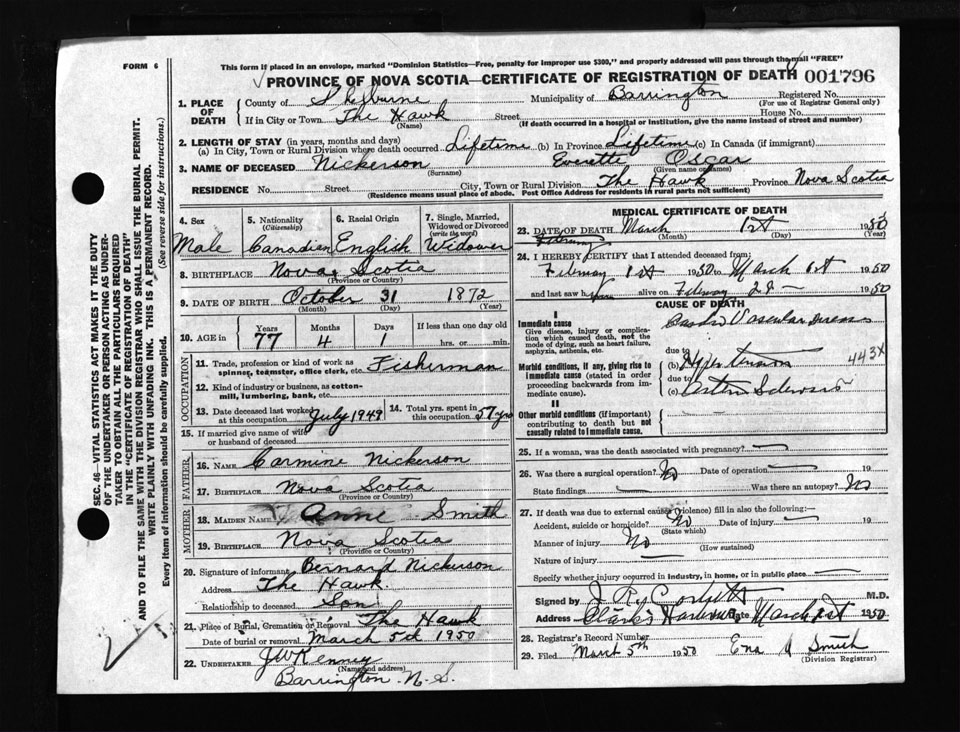 FORM 6
This form if placed in an envelope, marked "Dominion Statistics—Free, penalty for improper use $300," and properly addressed will pass through the mail "FREE"
PROVINCE OF NOVA SCOTIA—CERTIFICATE OF REGISTRATION OF DEATH 001796
1. PLACE OF DEATH
County of Shelburne Municipality of Barrington Registered No.
(For use of Registrar General only)
If in City or Town The Hawk Street House No.
(Name) (If death occurred in a hospital or institution, give the name instead of street and number)
2. LENGTH OF STAY (in years, months and days)
(a) In City, Town or Rural Division where death occurred Lifetime (b) In Province Lifetime (c) In Canada (if immigrant)
3. NAME OF DECEASED Nickerson Everette Oscar
(Surname) (Given name or names)
RESIDENCE No. Street City, Town or Rural Division The Hawk Province Nova Scotia
(Residence means usual place of abode. Post Office Address for residents in rural parts not sufficient)
4. Sex
Male
5. Nationality
(Citizenship)
Canadian
6. Racial Origin
English
7. Single, Married, Widowed or Divorced
(write the word)
Widower
8. BIRTHPLACE Nova Scotia
(Province or Country)
9. DATE OF BIRTH October 31 1872
(Month) (Day) (Year)
10. AGE in
Years Months Days If less than one day old
77 4 1 hrs. or min.
OCCUPATION
11. Trade, profession or kind of work as spinner, teamster, office clerk, etc. Fisherman
12. Kind of industry or business, as cotton-mill, lumbering, bank, etc.
13. Date deceased last worked at this occupation July 1949
14. Total yrs. spent in this occupation 57 yrs
15. If married give name of wife or husband of deceased
FATHER
16. NAME Carmine Nickerson
17. BIRTHPLACE Nova Scotia
(Province or Country)
MOTHER
18. MAIDEN NAME Anne Smith
19. BIRTHPLACE Nova Scotia
(Province or Country)
20. Signature of informant Bernard Nickerson
Address The Hawk
Relationship to deceased Son
21. Place of Burial, Cremation or Removal The Hawk
Date of burial or removal March 5th 1950
22. UNDERTAKER J W Kenney
(Name and address)
Barrington N. S.
MEDICAL CERTIFICATE OF DEATH
23. DATE OF DEATH March 1st 1950
(Month) (Day) (Year)
24. I HEREBY CERTIFY that I attended deceased from:
February 1st 1950 to March 1st 1950
and last saw him alive on February 28 1950
CAUSE OF DEATH
I
Immediate cause
Give disease, injury or complication which caused death, not the mode of dying, such as heart failure, asphyxia, asthenia, etc.
Cardio Vascular Disease
Morbid conditions, if any, giving rise to immediate cause (stated in order proceeding backwards from immediate cause).
due to
(b) Hypertension
443X
due to
(c) Arterio Sclerosis
II
Other morbid conditions (if important) contributing to death but not causally related to immediate cause.
25. If a woman, was the death associated with pregnancy?
26. Was there a surgical operation? No Date of operation 19
State findings Was there an autopsy? No
27. If death was due to external causes (violence) fill in also the following:—
Accident, suicide or homicide? No Date of injury 19
(State which)
Manner of injury No
(How sustained)
Nature of injury
Specify whether injury occurred in industry, in home, or in public place
Signed by M.D.
Address Clark's Harbour Date March 1st 1950
28. Registrar's Record Number
29. Filed March 5th 1950 Ena Smith
(Division Registrar)
SEC. 46—VITAL STATISTICS ACT MAKES IT THE DUTY
OF THE UNDERTAKER OR PERSON ACTING AS UNDER-
TAKER TO OBTAIN ALL THE PARTICULARS REQUIRED
IN THE "CERTIFICATE OF REGISTRATION OF DEATH"
AND TO FILE THE SAME WITH THE DIVISION REGISTRAR WHO SHALL ISSUE THE BURIAL PERMIT.
WRITE PLAINLY WITH UNFADING INK. THIS IS A PERMANENT RECORD.
Every item of information should be carefully supplied. (See reverse side for instructions.)